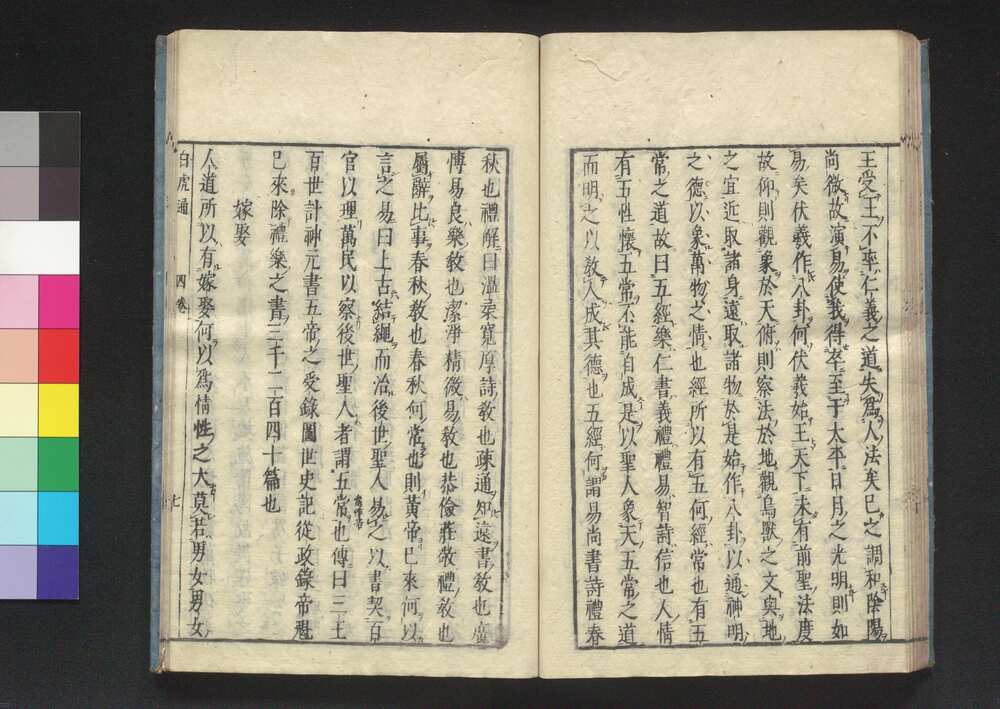 王受王不率仁義之道失爲人法矣已之調和陰陽
尚微故演易使我得卒至于太平日月之光明則如
易矣伏羲作八卦何伏羲始王天下未有前聖法度
故仰則觀象於天俯則察法於地觀鳥獸之文與地
之宜近取諸身遠取諸物於是始作八卦以通神明
之德以象萬物之情也經所以有五何經常也有五
常之道故曰五經樂仁書義禮禮易智詩信也人情
有五性懷五常不能自成是以聖人象天五常之道
而明之以敎人成其德也五經何謂易尚書詩禮春
秋也禮解曰溫柔寬厚詩敎也疎通知遠書敎也廣
愽易良樂敎也潔淨精微易敎也恭儉莊敬禮敎也
屬辭比事春秋敎也春秋何常也則黃帝已來何以
言之易曰上古結繩而治後世聖人易之以書契百
官以理萬民以察後世聖人者謂五常也傳曰三王
百世計神元書五帝之受錄圖世史記從政錄帝魁
已來除禮樂之書三千二百四十篇也
嫁娶
人道所以有嫁娶何以爲情性之大莫若男女男女
白虎通 四卷 七